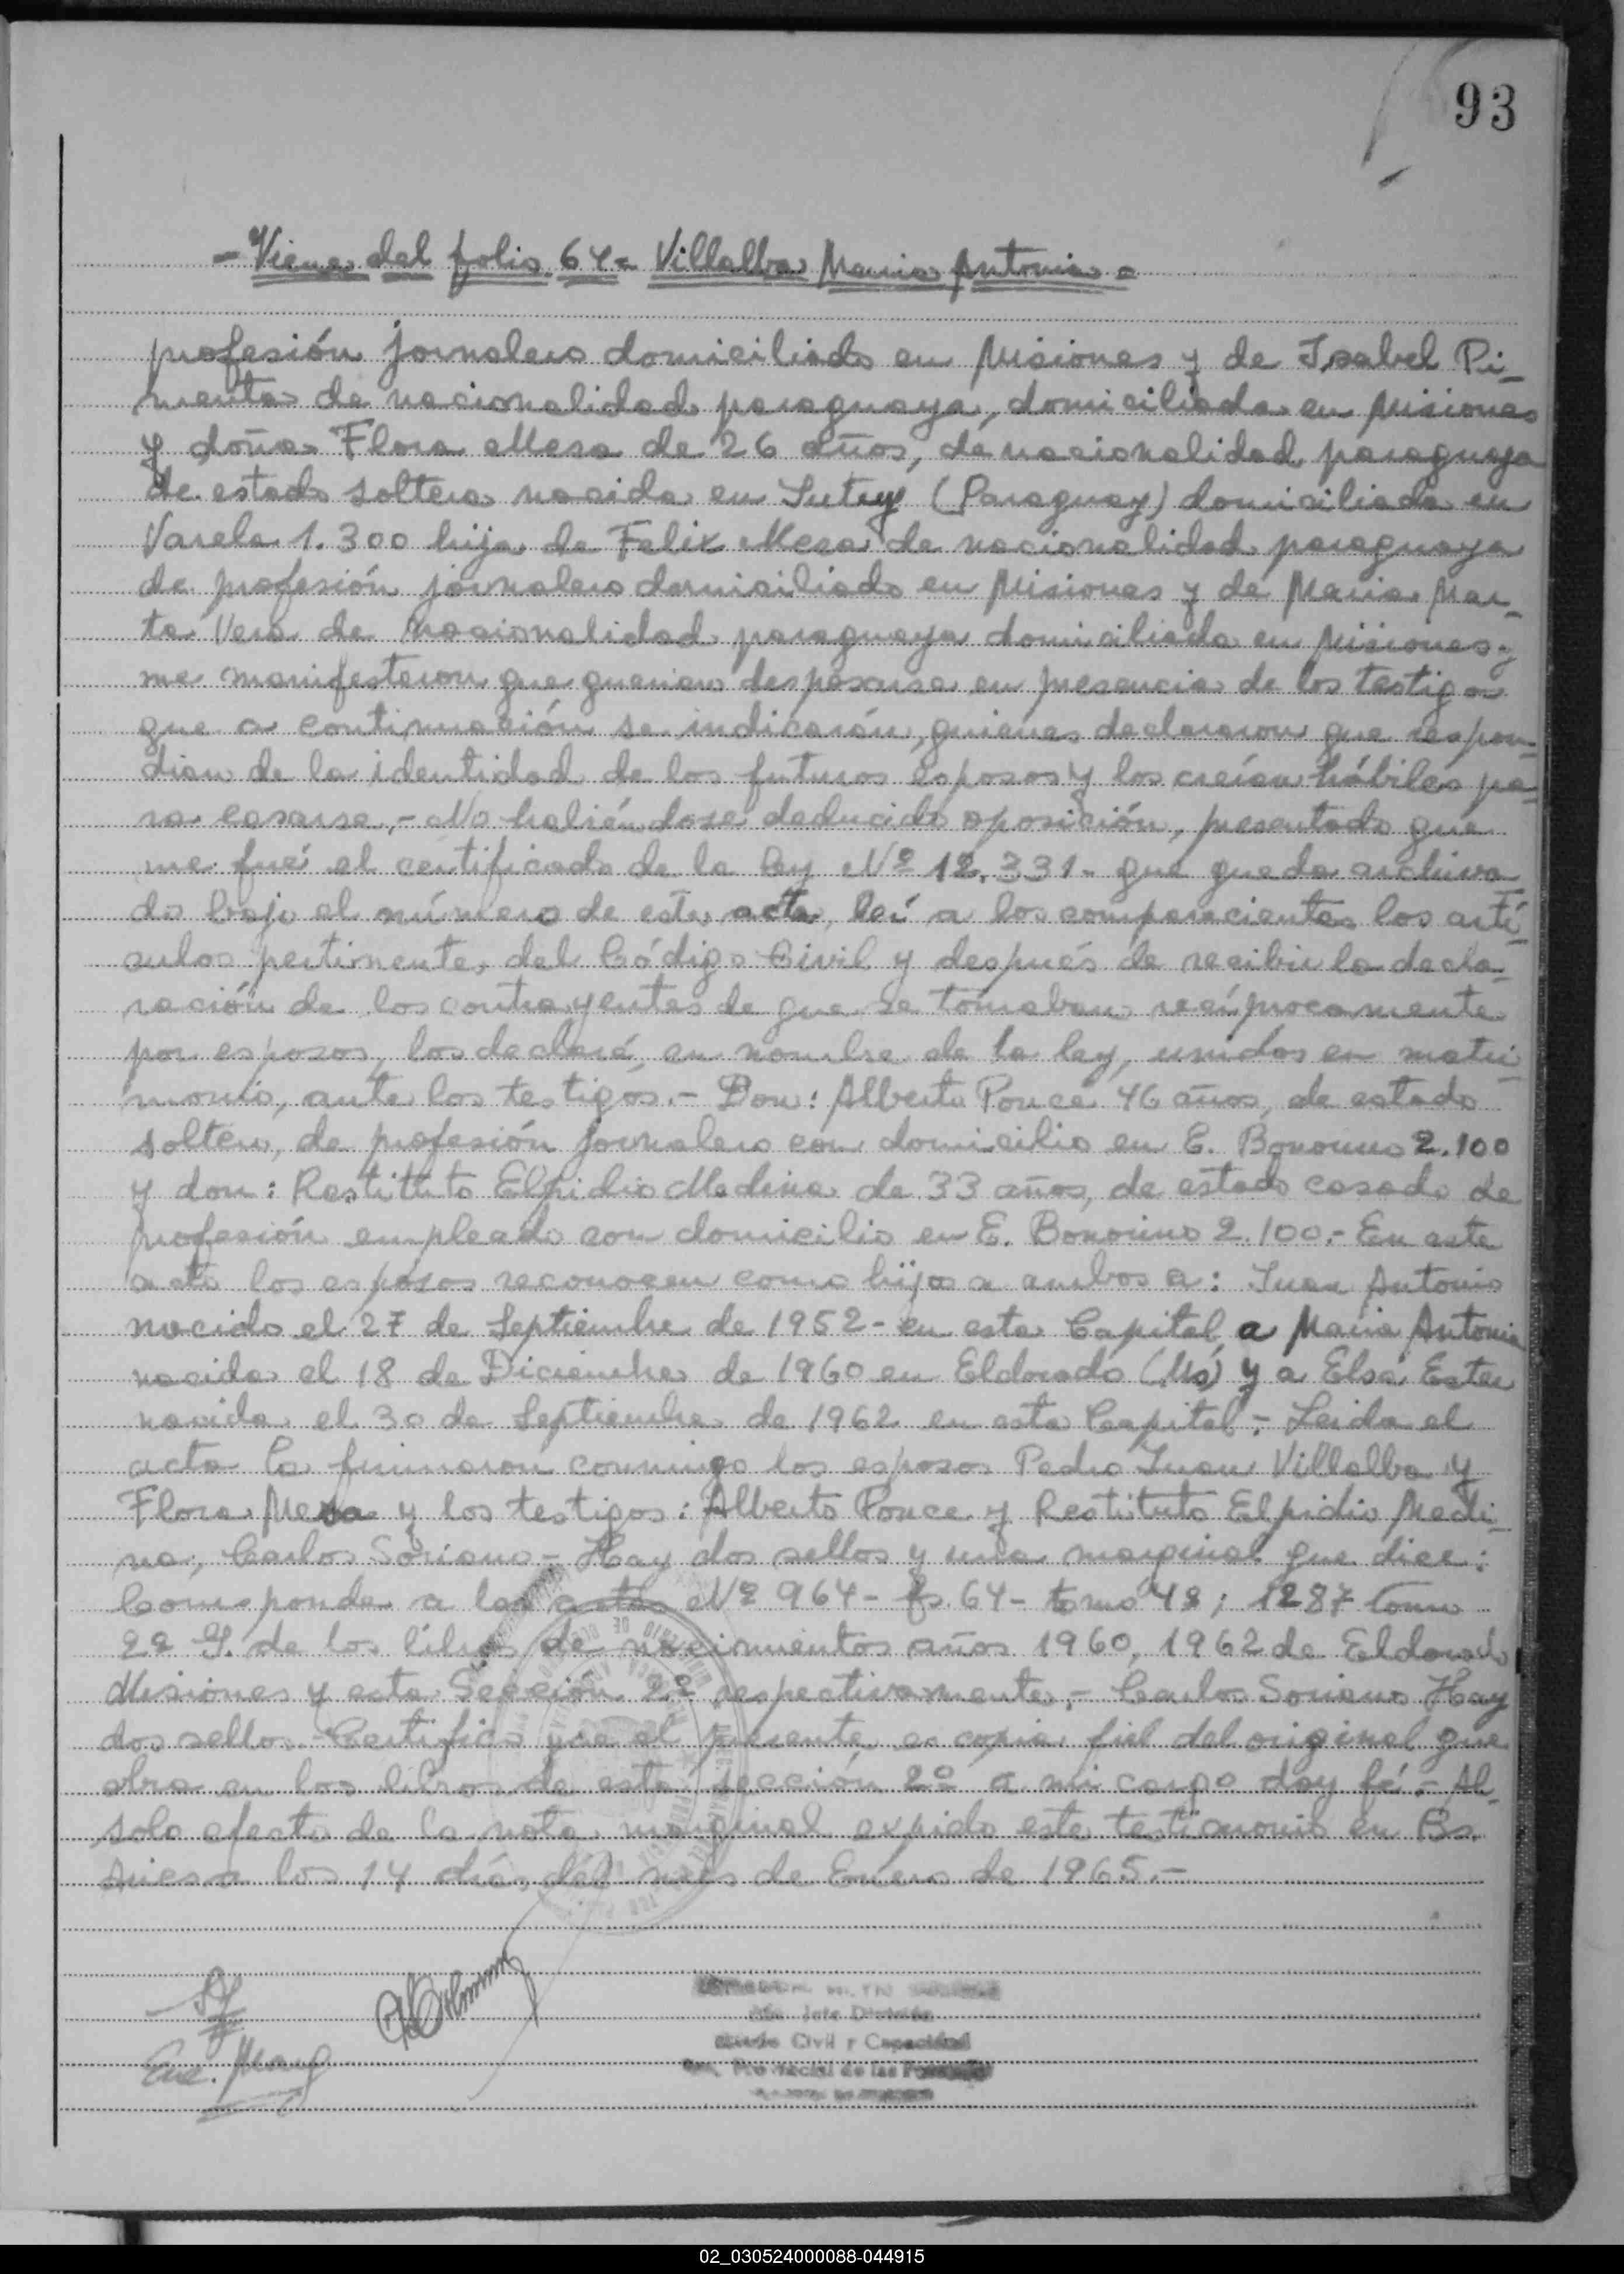 93
- Viene del folio 64 - Villalba Maria Antonia -
profesión jornalero domiciliado en Misiones y de Isabel Pi-
menta de nacionalidad paraguaya, domiciliada en Misiones
y doña Flora Mesa de 26 años, de nacionalidad paraguaya
de estado soltera nacida en (Paraguay) domiciliada en
Varela 1.300 hija de Felix Mesa de nacionalidad paraguaya
de profesión jornalero domiciliado en Misiones y de Maria Mar-
ta Vera de nacionalidad paraguaya domiciliada en Misiones y
me manifestaron que querian desposarse en presencia de los testigos
que a continuación se indicarán, quienes declararon que respon-
dian de la identidad de los futuros esposos y los creían hábiles pa-
ra casarse,- No habiéndose deducido oposición, presentado que
me fué el certificado de la ley Nº 12.331- que queda archiva-
do bajo el número de este acta, leí a los comparecientes los artí-
culos pertinente, del Código Civil y después de recibir la decla-
ración de los contrayentes de que se tomaban recíprocamente
por esposos, los declaré, en nombre de la ley, unidos en matri-
monio, ante los testigos.- Don: Alberto Ponce 46 años, de estado
soltero, de profesión jornalero con domicilio en E. Bonorino 2.100
y don: Restituto Elpidio Medina de 33 años, de estado casado de
profesión empleado con domicilio en E. Bonorino 2.100.- En este
acto los esposos reconocen como hijos a ambos a: Juan Antonio
nacido el 27 de Septiembre de 1952- en esta Capital, a Maria Antonia
nacida el 18 de Diciembre de 1960 en Eldorado (Ms) y a Elsa Ester
nacida el 30 de Septiembre de 1962 en esta Capital,- Leida el
acta la firmaron conmigo los esposos Pedro Juan Villalba y
Flora Mesa y los testigos: Alberto Ponce y Restituto Elpidio Medi-
na, Carlos Soriano- Hay dos sellos y una marginal que dice:
Corresponde a las actas Nº 964- fs 64- tomo 4º; 1287 tomo
2º de los libros de nacimientos años 1960, 1962 de Eldorado
Misiones y esta Sección 2º respectivamente,- Carlos Soriano Hay
dos sellos.- Certifico que el presente, es copia fiel del original que
obra en los libros de esta sección 2º a mi cargo doy fé.- Al
solo efecto de la nota marginal expido este testimonio en Bs.
Aires a los 14 días del mes de Enero de 1965.-
Jefe División
Civil y Capacidad
Provincial de las Personas
02_030524000088-044915